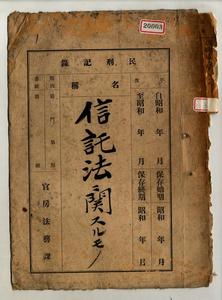 20003
民刑記録
名稱
信託法ニ関スルモノ
自昭和 年 月
至昭和 年 月
保存始期 昭和 年 月
保存終期 昭和 年 月
官房法務課